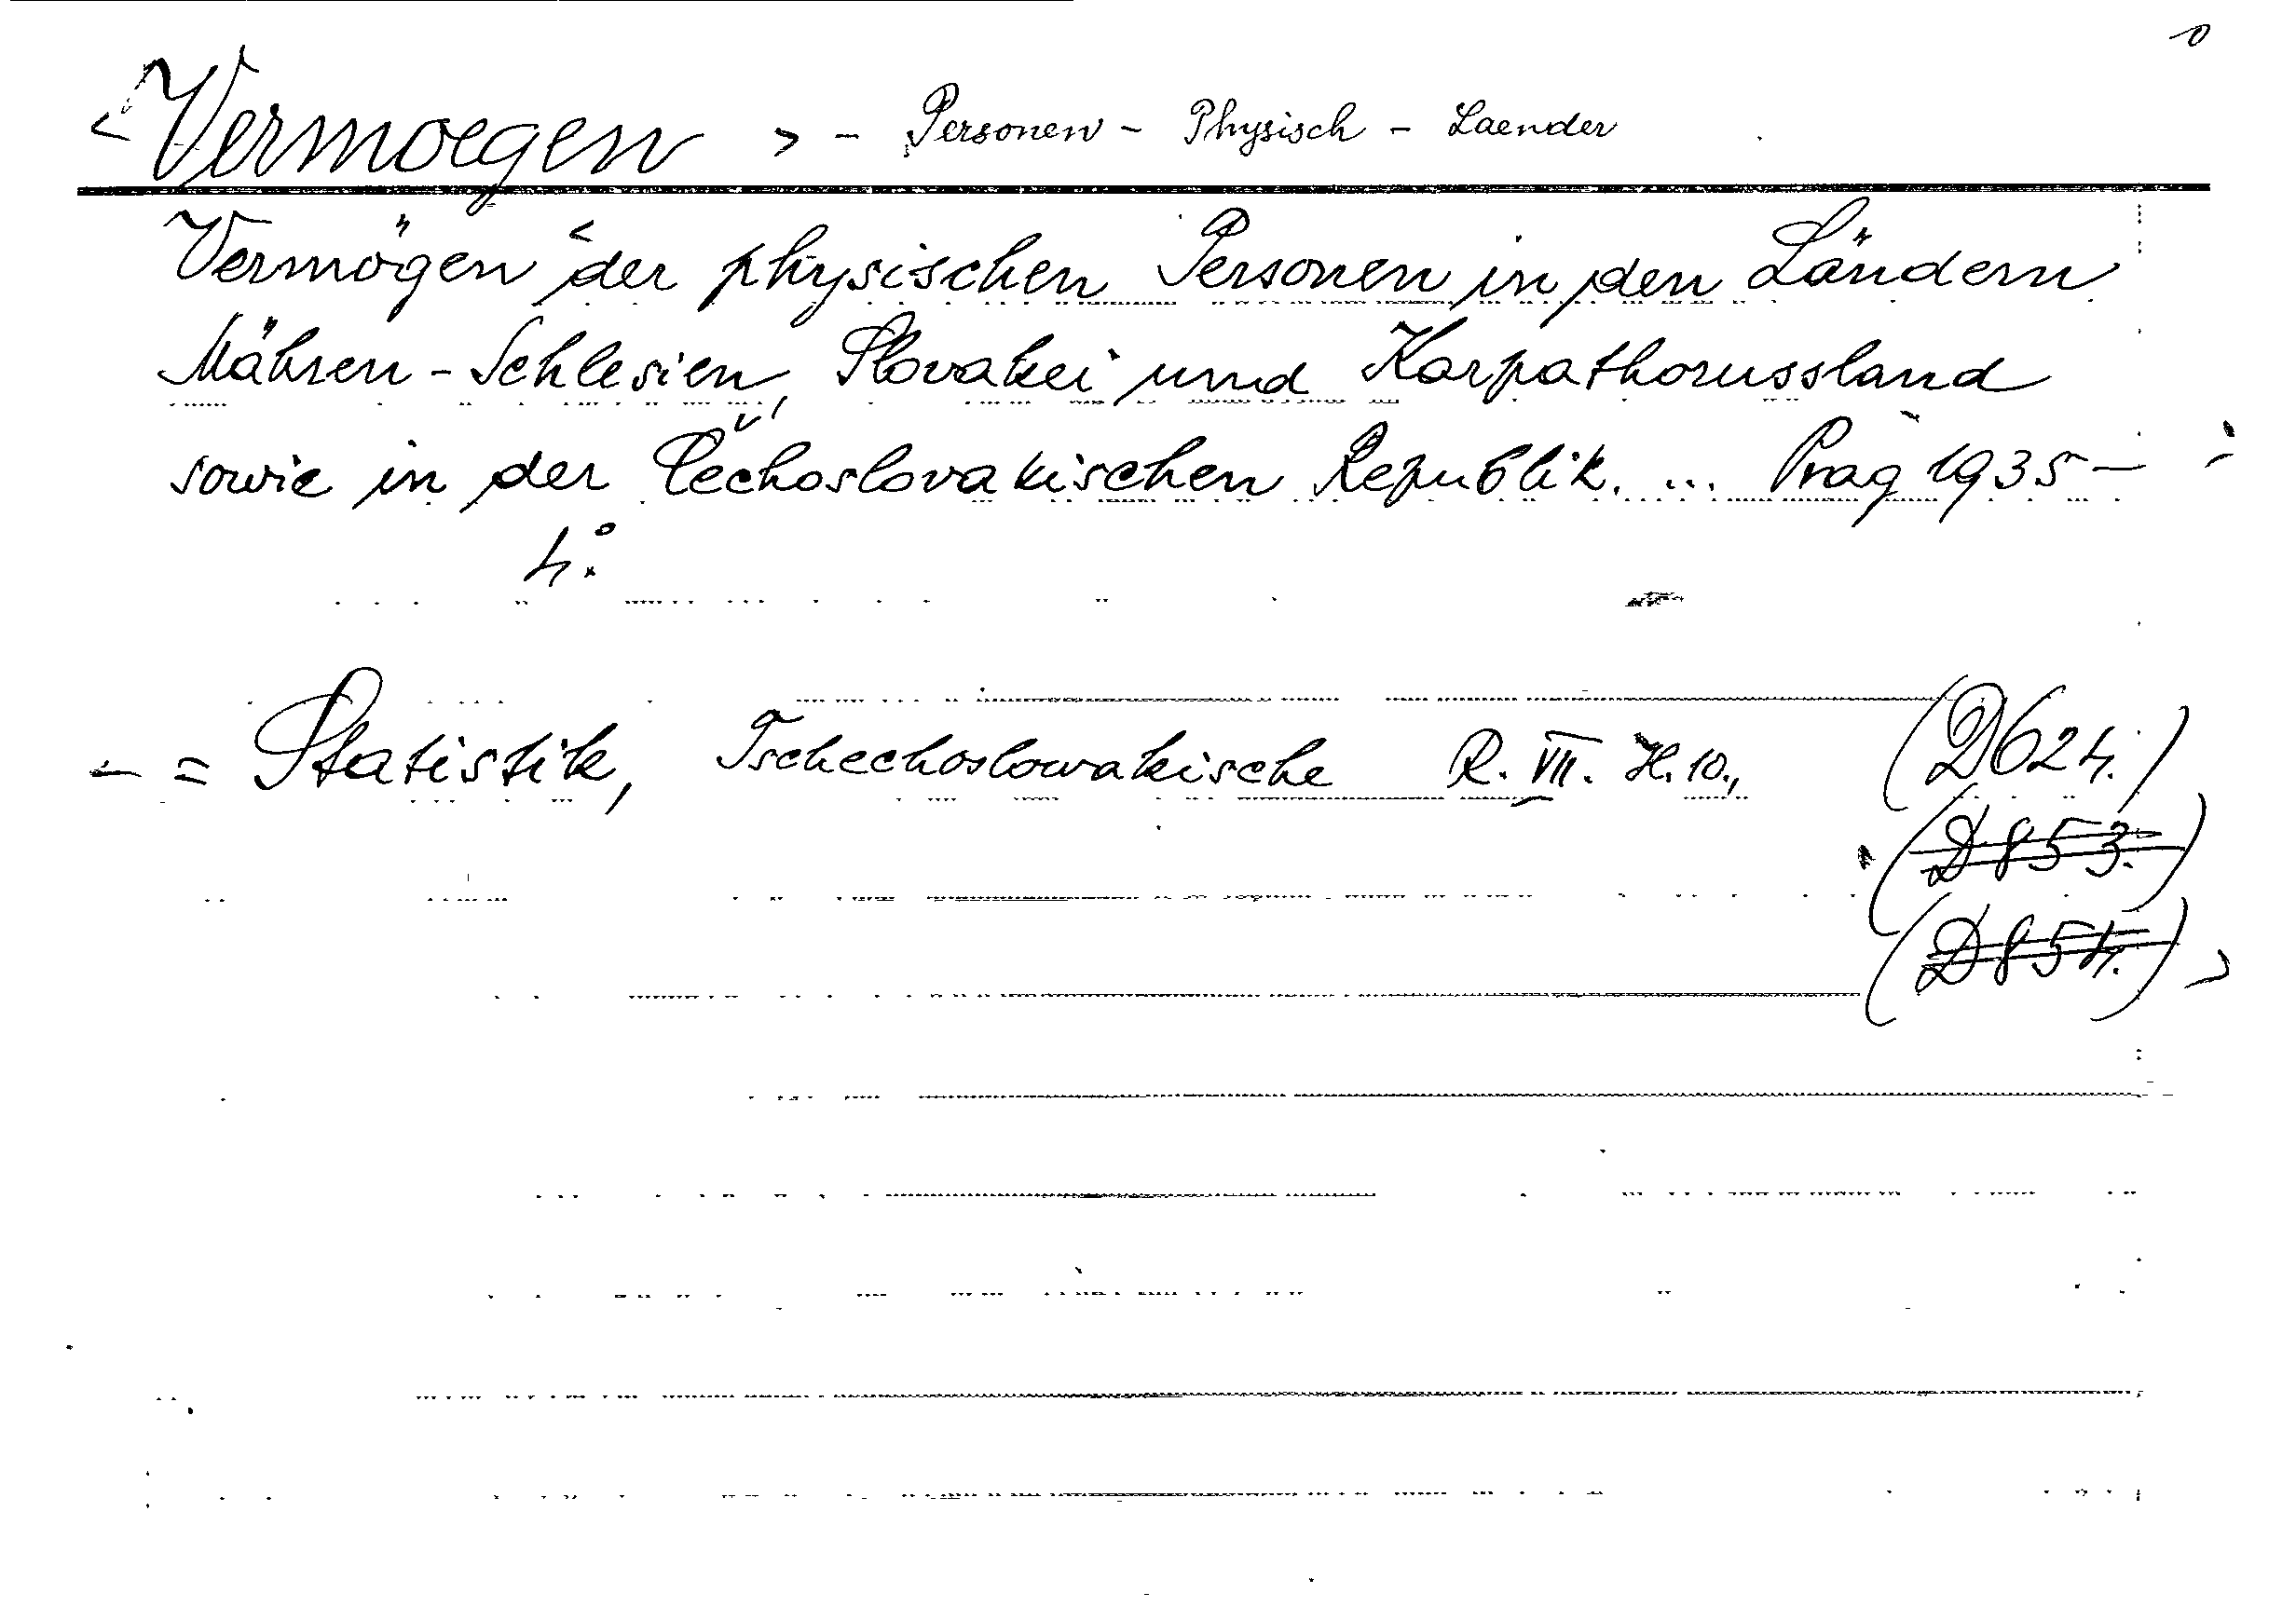 < Vermoegen > - Personen - Physisch - Laender
Vermögen der physischen Personen in den Ländern
Mähren - Schlesien, Slovakei und Karpathorussland
sowie in der Čechoslovakischen Republik. ... Prag 1935 -
4°.
- = Statistik, Tschechoslowakische R. VII. H. 10., (D624.)
(D853.)
(D854.)